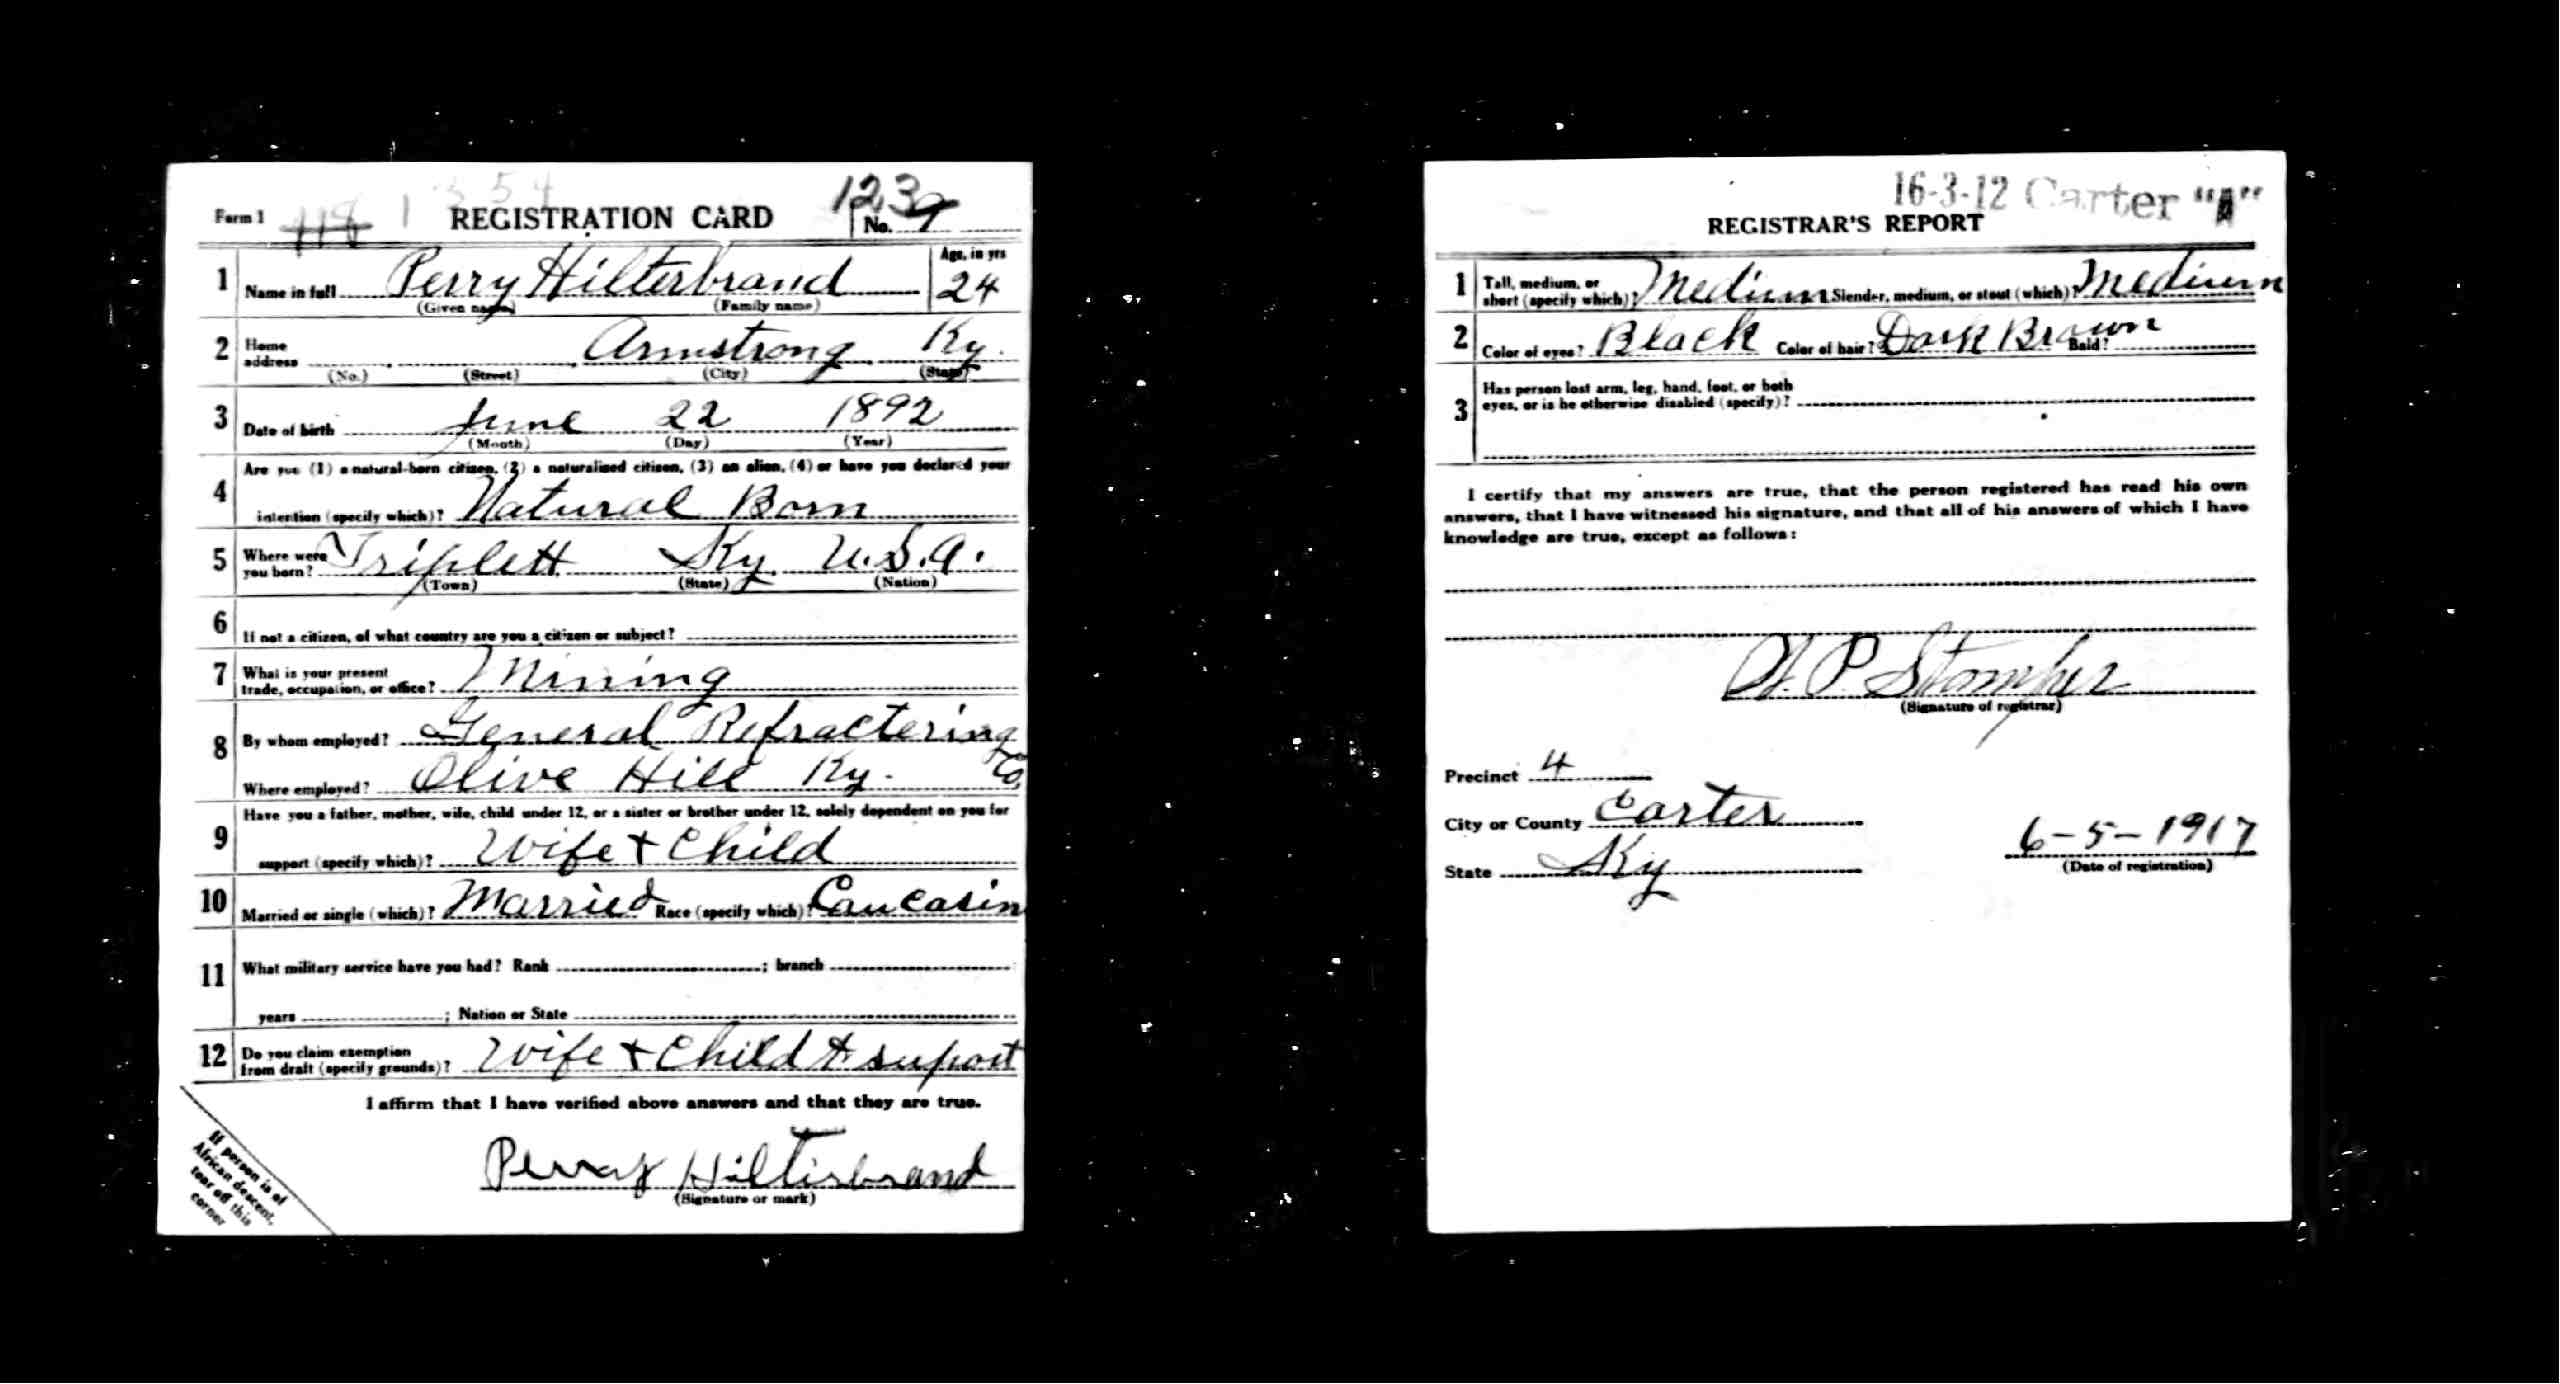 1239
Form 1 118 1 354 REGISTRATION CARD No. 9
1 Name in full Perry Hilterbrand Age, in yrs 24
(Given name) (Family name)
2 Home address Armstrong Ky.
(No.) (Street) (City) (State)
3 Date of birth June 22 1892
(Month) (Day) (Year)
4 Are you (1) a natural-born citizen, (2) a naturalized citizen, (3) an alien, (4) or have you declared your
intention (specify which)? Natural Born
5 Where were you born? Triplett Ky. U.S.A.
(Town) (State) (Nation)
6 If not a citizen, of what country are you a citizen or subject?
7 What is your present trade, occupation, or office? Mining
8 By whom employed? General Refractering Co
Where employed? Olive Hill Ky.
9 Have you a father, mother, wife, child under 12, or a sister or brother under 12, solely dependent on you for
support (specify which)? Wife + Child
10 Married or single (which)? Married Race (specify which)? Caucasin
11 What military service have you had? Rank ; branch
years ; Nation or State
12 Do you claim exemption from draft (specify grounds)? Wife + Child + suport
I affirm that I have verified above answers and that they are true.
Perry Hiltisbrand
(Signature or mark)
If person is of
African descent,
tear off this
corner
16-3-12 Carter "A"
REGISTRAR'S REPORT
1 Tall, medium, or short (specify which)? Medium Slender, medium, or stout (which)? Medium
2 Color of eyes? Black Color of hair? Dark Brown Bald?
3 Has person lost arm, leg, hand, foot, or both
eyes, or is he otherwise disabled (specify)?
I certify that my answers are true, that the person registered has read his own
answers, that I have witnessed his signature, and that all of his answers of which I have
knowledge are true, except as follows:
P. Stamper
(Signature of registrar)
Precinct 4
City or County Carter
State Ky
6-5-1917
(Date of registration)